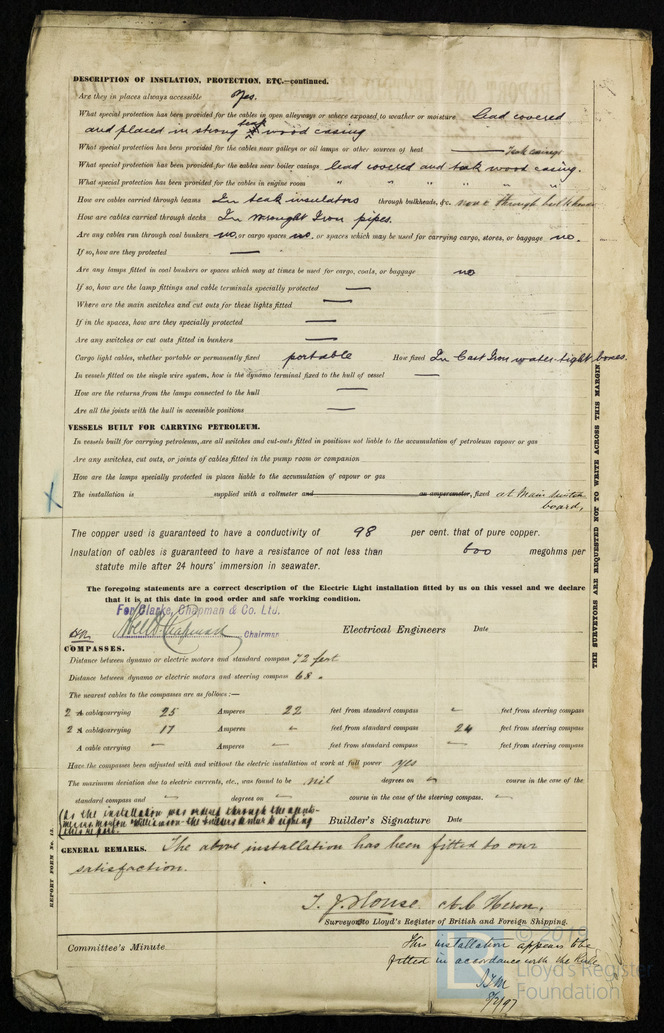 DESCRIPTION OF INSULATION, PROTECTION, ETC.—continued.
Are they in places always accessible Yes.
What special protection has been provided for the cables in open alleyways or where exposed to weather or moisture Lead covered
and placed in strong teak wood casing
What special protection has been provided for the cables near galleys or oil lamps or other sources of heat — Teak casing
What special protection has been provided for the cables near boiler casings lead covered and teak wood casing.
What special protection has been provided for the cables in engine room " " " " " "
How are cables carried through beams In teak insulators through bulkheads, &c. none through bulkheads
How are cables carried through decks In Wrought Iron pipes.
Are any cables run through coal bunkers no or cargo spaces no or spaces which may be used for carrying cargo, stores, or baggage no.
If so, how are they protected —
Are any lamps fitted in coal bunkers or spaces which may at times be used for cargo, coals, or baggage no
If so, how are the lamp fittings and cable terminals specially protected —
Where are the main switches and cut outs for these lights fitted —
If in the spaces, how are they specially protected —
Are any switches or cut outs fitted in bunkers —
Cargo light cables, whether portable or permanently fixed portable How fixed In Cast Iron water-tight boxes.
In vessels fitted on the single wire system, how is the dynamo terminal fixed to the hull of vessel —
How are the returns from the lamps connected to the hull —
Are all the joints with the hull in accessible positions —
VESSELS BUILT FOR CARRYING PETROLEUM.
In vessels built for carrying petroleum, are all switches and cut-outs fitted in positions not liable to the accumulation of petroleum vapour or gas
Are any switches, cut outs, or joints of cables fitted in the pump room or companion
How are the lamps specially protected in places liable to the accumulation of vapour or gas
The installation is supplied with a voltmeter and an amperemeter, fixed at Main Switch
board,
The copper used is guaranteed to have a conductivity of 98 per cent. that of pure copper.
Insulation of cables is guaranteed to have a resistance of not less than 600 megohms per
statute mile after 24 hours' immersion in seawater.
The foregoing statements are a correct description of the Electric Light installation fitted by us on this vessel and we declare
that it is, at this date in good order and safe working condition.
For Clarke, Chapman & Co. Ltd.
Chapman Chairman Electrical Engineers Date
COMPASSES.
Distance between dynamo or electric motors and standard compass 72 feet
Distance between dynamo or electric motors and steering compass 68 "
The nearest cables to the compasses are as follows:—
2 A cables carrying 25 Amperes 22 feet from standard compass - feet from steering compass
2 A cables carrying 17 Amperes - feet from standard compass 24 feet from steering compass
A cable carrying - Amperes - feet from standard compass - feet from steering compass
Have the compasses been adjusted with and without the electric installation at work at full power yes
The maximum deviation due to electric currents, etc., was found to be nil degrees on - course in the case of the
standard compass and - degrees on - course in the case of the steering compass. -
As the installation was ordered through the
this report.
Builder's Signature Date
GENERAL REMARKS. The above installation has been fitted to our
satisfaction.
Surveyors to Lloyd's Register of British and Foreign Shipping.
Committee's Minute
This installation appears to be
fitted in accordance with the Rules
THE SURVEYORS ARE REQUESTED NOT TO WRITE ACROSS THIS MARGIN.
REPORT FORM No. 13.
© 2019
Lloyd's Register
Foundation